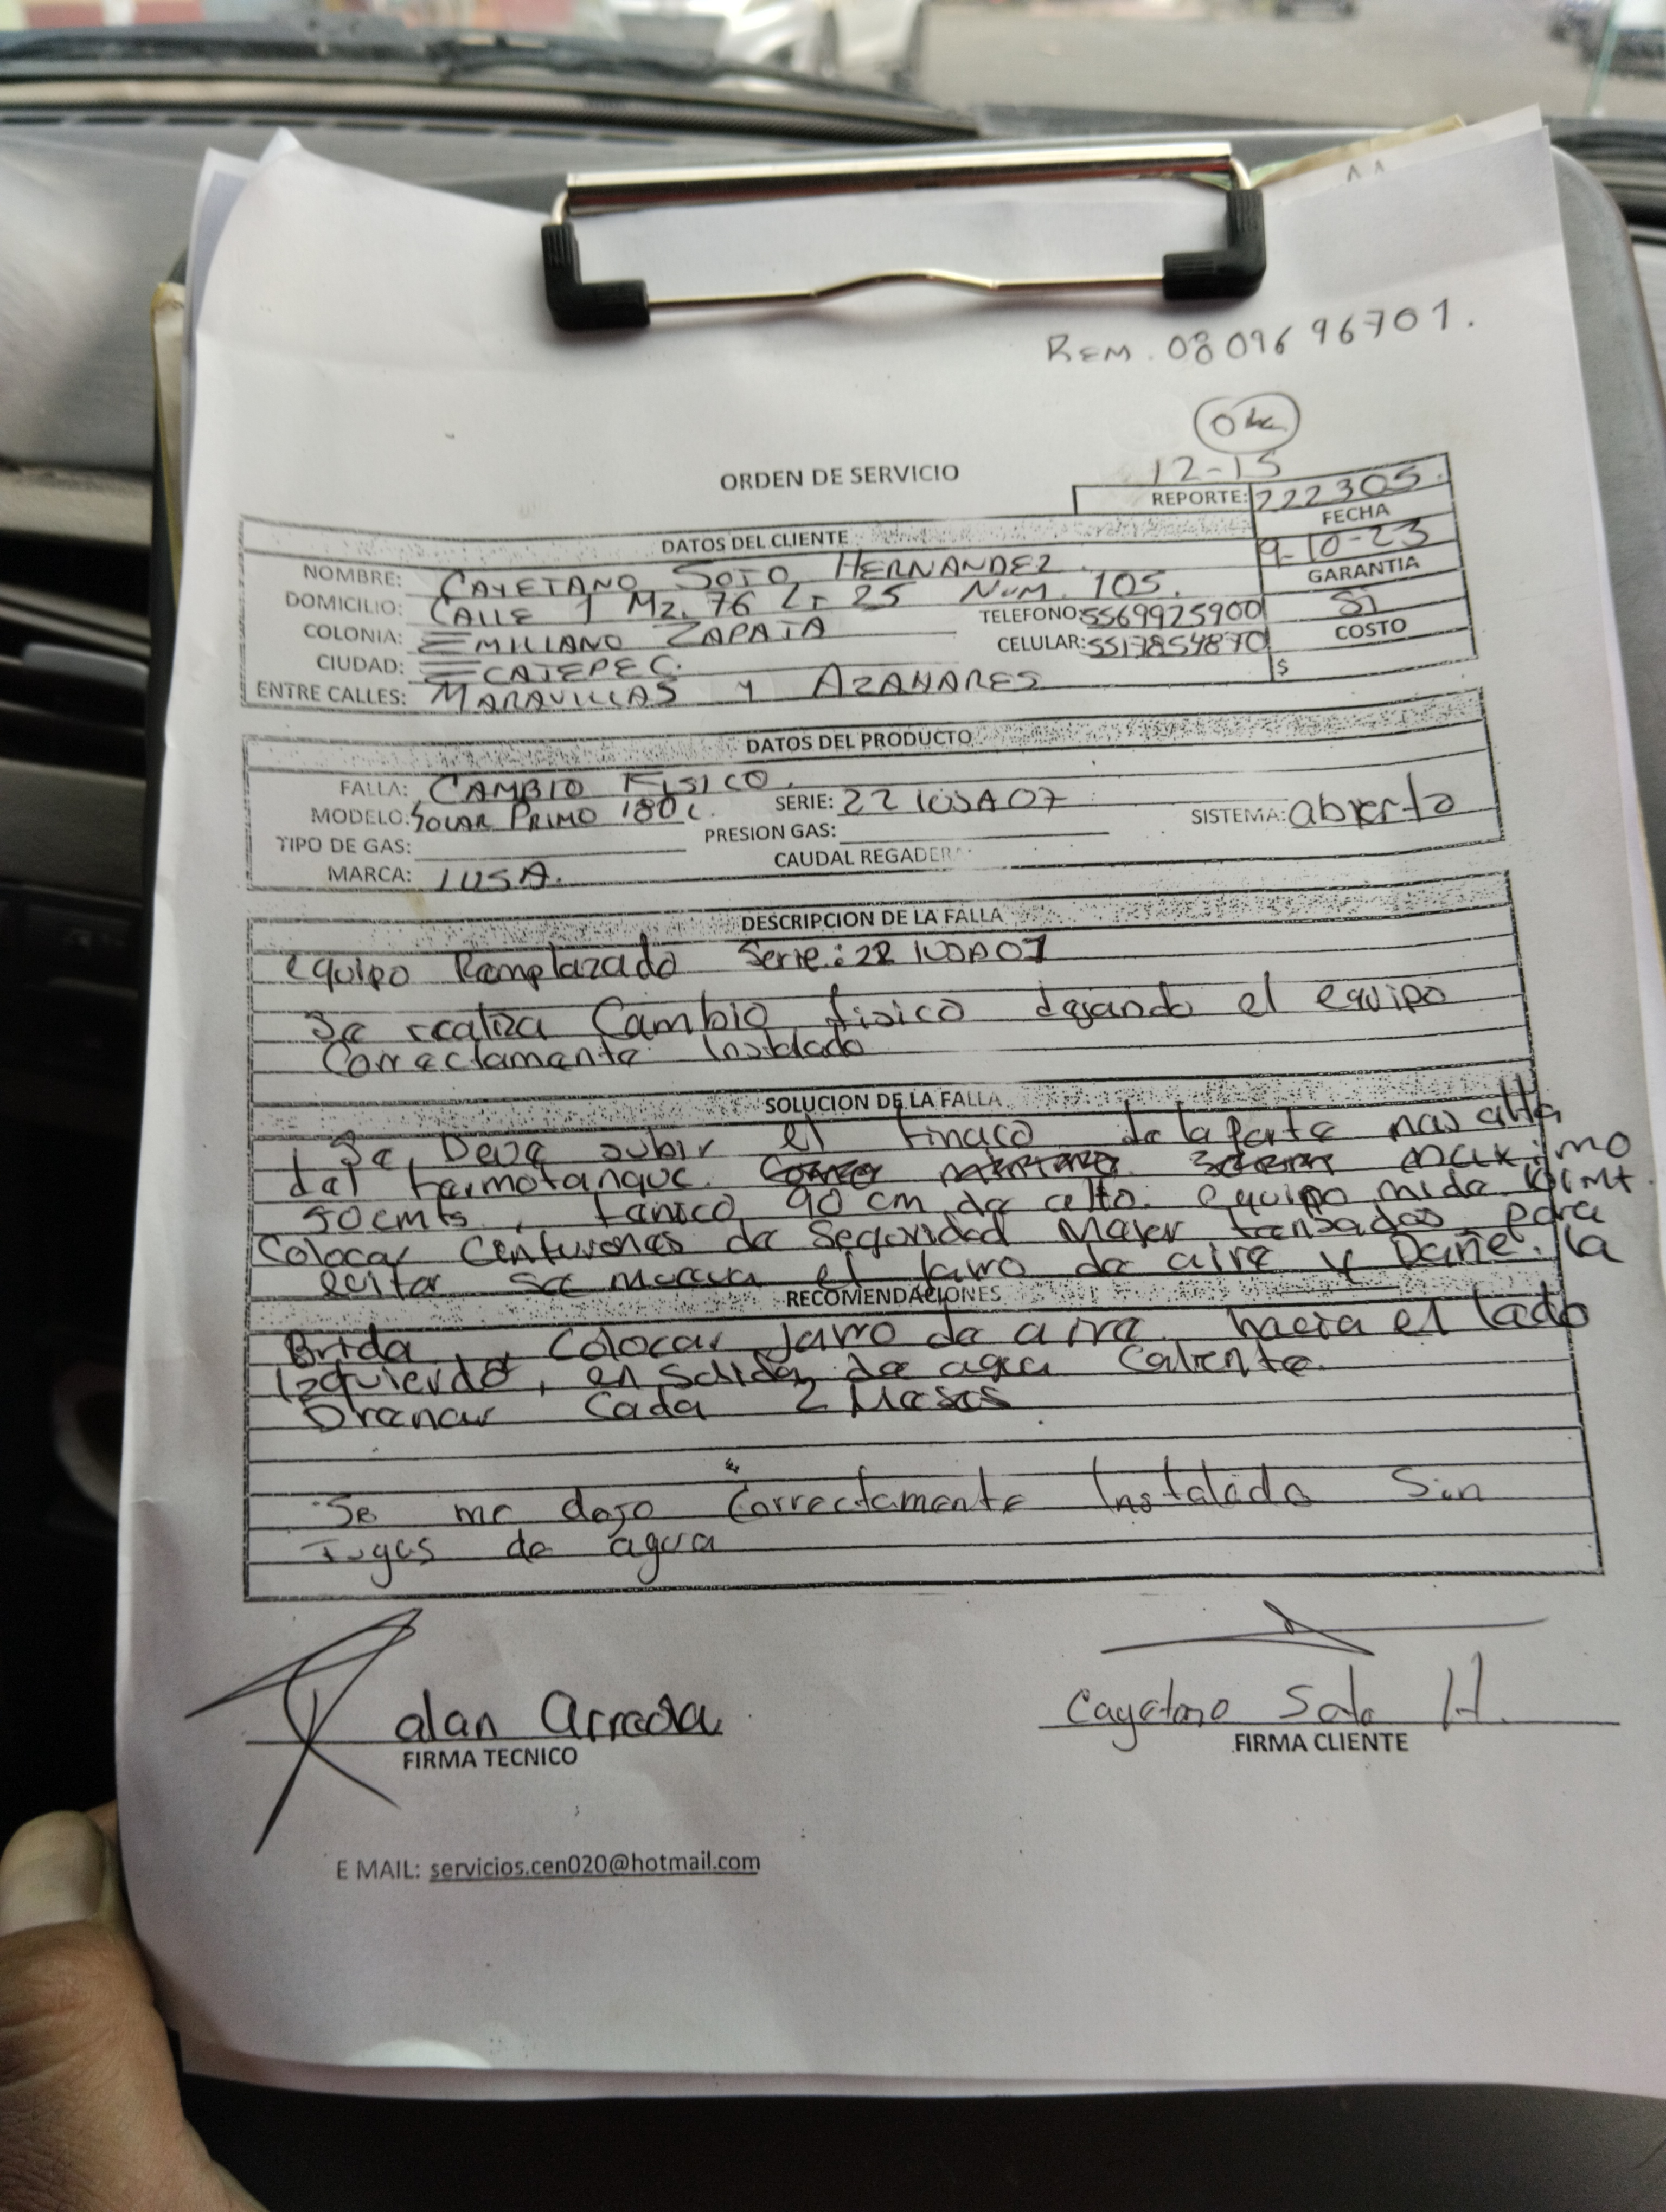 REM. 0809696701.
12-15
ORDEN DE SERVICIO
REPORTE: 222305.
DATOS DEL CLIENTE
FECHA
9-10-23
NOMBRE: CAYETANO SOTO HERNANDEZ
GARANTIA
DOMICILIO: CALLE 1 MZ. 76 LT 25 NUM. 105.
SI
COLONIA: EMILIANO ZAPATA TELEFONO: 5569925900
COSTO
CIUDAD: ECATEPEC. CELULAR: 5517854870
$
ENTRE CALLES: MARAVILLAS Y AZAHARES
DATOS DEL PRODUCTO
FALLA: CAMBIO FISICO.
MODELO: SOLAR PRIMO 180L. SERIE: 22IUSA07 SISTEMA: abierto
TIPO DE GAS: PRESION GAS:
MARCA: IUSA. CAUDAL REGADERA
DESCRIPCION DE LA FALLA
equipo Remplazado Serie: 22 IUSA07
Se realiza Cambio fisico dejando el equipo
Correctamente Instalado
SOLUCION DE LA FALLA
Se Deve subir el tinaco de la parte mas alta
del termotanque maximo
50cmts, tanico 90 cm de alto. equipo mide
Colocar Centurones de Seguridad Mayer tensados para
evitar se mueva el Jarro de aire y Dañe. la
RECOMENDACIONES
Brida, Colocar Jarro de aire hacia el lado
Izquierdo, en Salida de agua Caliente.
Drenar Cada 2 Meses
Se me dejo Correctamente Instalado Sin
Fugas de agua
alan Arreola Cayetano Soto H.
FIRMA TECNICO FIRMA CLIENTE
E MAIL: servicios.cen020@hotmail.com